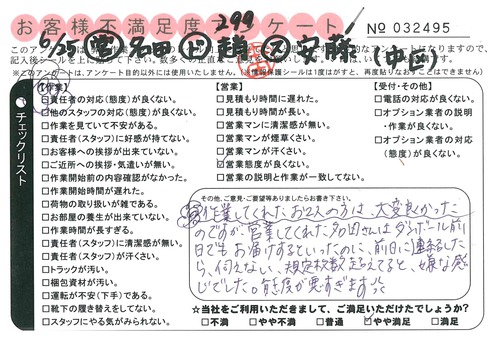 お客様不満足度アンケート
299
No 032495
9/25 営 名田 上 趙 2 安藤 (中区)
記入後シールを上に貼って下さい。
※このアンケートは、アンケート目的以外には使用いたしません。※情報保護シールは1度はがすと、再度貼りなおすことはできません
チェックリスト
【作業】
□責任者の対応(態度)が良くない。
□他のスタッフの対応(態度)が良くない。
□作業を見ていて不安がある。
□責任者(スタッフ)に好感が持てない。
□お客様への挨拶が出来ていない。
□ご近所への挨拶・気遣いが無い。
□作業開始前の内容確認がなかった。
□作業開始時間が遅れた。
□荷物の取り扱いが雑である。
□お部屋の養生が出来ていない。
□作業時間が長すぎる。
□責任者(スタッフ)に清潔感が無い。
□責任者(スタッフ)が汗くさい。
□トラックが汚い。
□梱包資材が汚い。
□運転が不安(下手)である。
□靴下の履き替えをしてない。
□スタッフにやる気がみられない。
【営業】
□見積もり時間に遅れた。
□見積もり時間が長い。
□営業マンに清潔感が無い。
□営業マンが煙草くさい。
□営業マンが汗くさい。
☑営業態度が良くない。
□営業の説明と作業が一致してない。
【受付・その他】
□電話の対応が良くない。
□オプション業者の説明
・作業が良くない。
□オプション業者の対応
(態度)が良くない。
その他、ご意見・ご要望等ありましたらお書き下さい。
営 作業してくれたお2人の方は、大変良かった
のですが、営業してくれた名田さんはダンボール前
日でもお届けするといったのに、前日に連絡した
ら、伺えない、規定枚数超えてると、嫌な感
じでした。態度が悪すぎます
☆当社をご利用いただきまして、ご満足いただけたでしょうか?
□不満 □やや不満 □普通 ☑やや満足 □満足